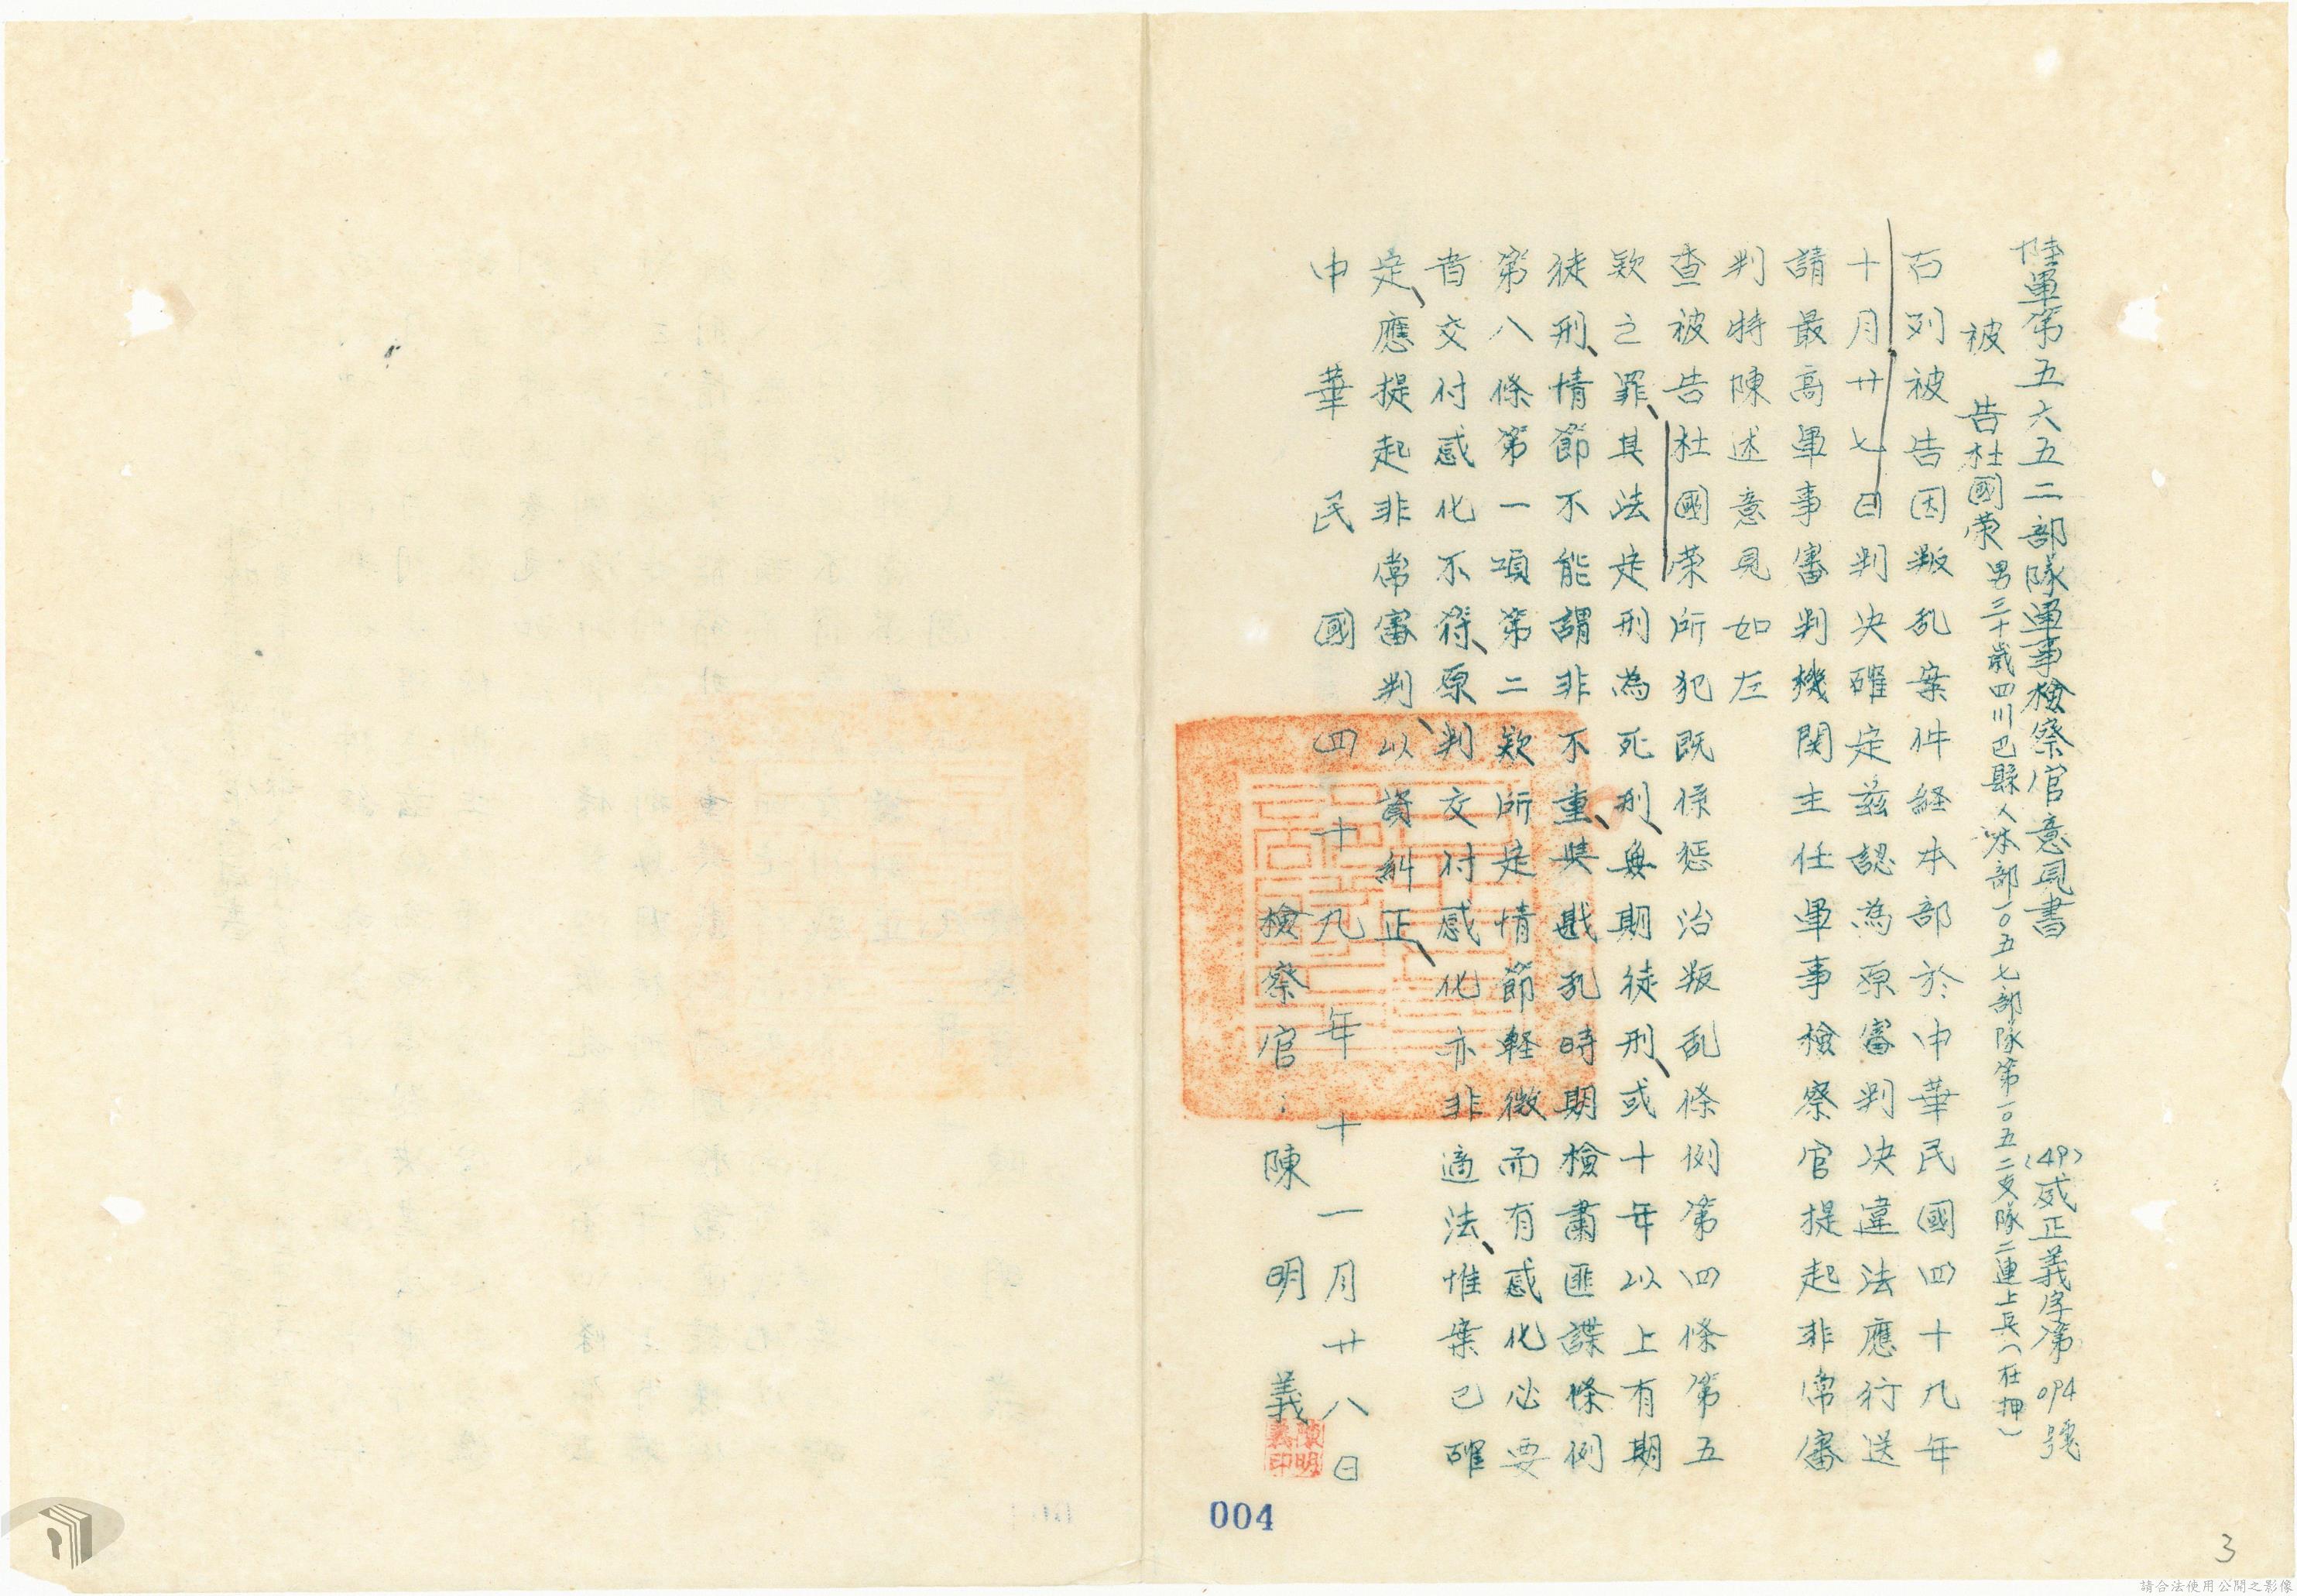 陸軍第五六五二部隊軍事檢察官意見書
(49)威正義字第094號
被 告 杜國荣 男三十歲四川巴縣人本部一0五七部隊第一0五二支隊二連上兵(在押)
右列被告因叛乱案件経本部於中華民國四十九年
十月廿七日判決確定茲認為原審判決違法應行送
請最高軍事審判機関主任軍事檢察官提起非常審
判特陳述意見如左
查被告杜國荣所犯既係惩治叛乱條例第四條第五
欵之罪、其法定刑為死刑、無期徒刑、或十年以上有期
徒刑、情節不能謂非不重、與戡乱時期檢肅匪諜條例
第八條第一項第二欵所定情節軽微而有感化必要
者交付感化不符、原判交付感化亦非適法、惟案已確
定、應提起非常審判、以資糾正、
中華民國四十九年十一月廿八日
檢察官:陳明義
陳明義印
004
3
請合法使用公開之影像